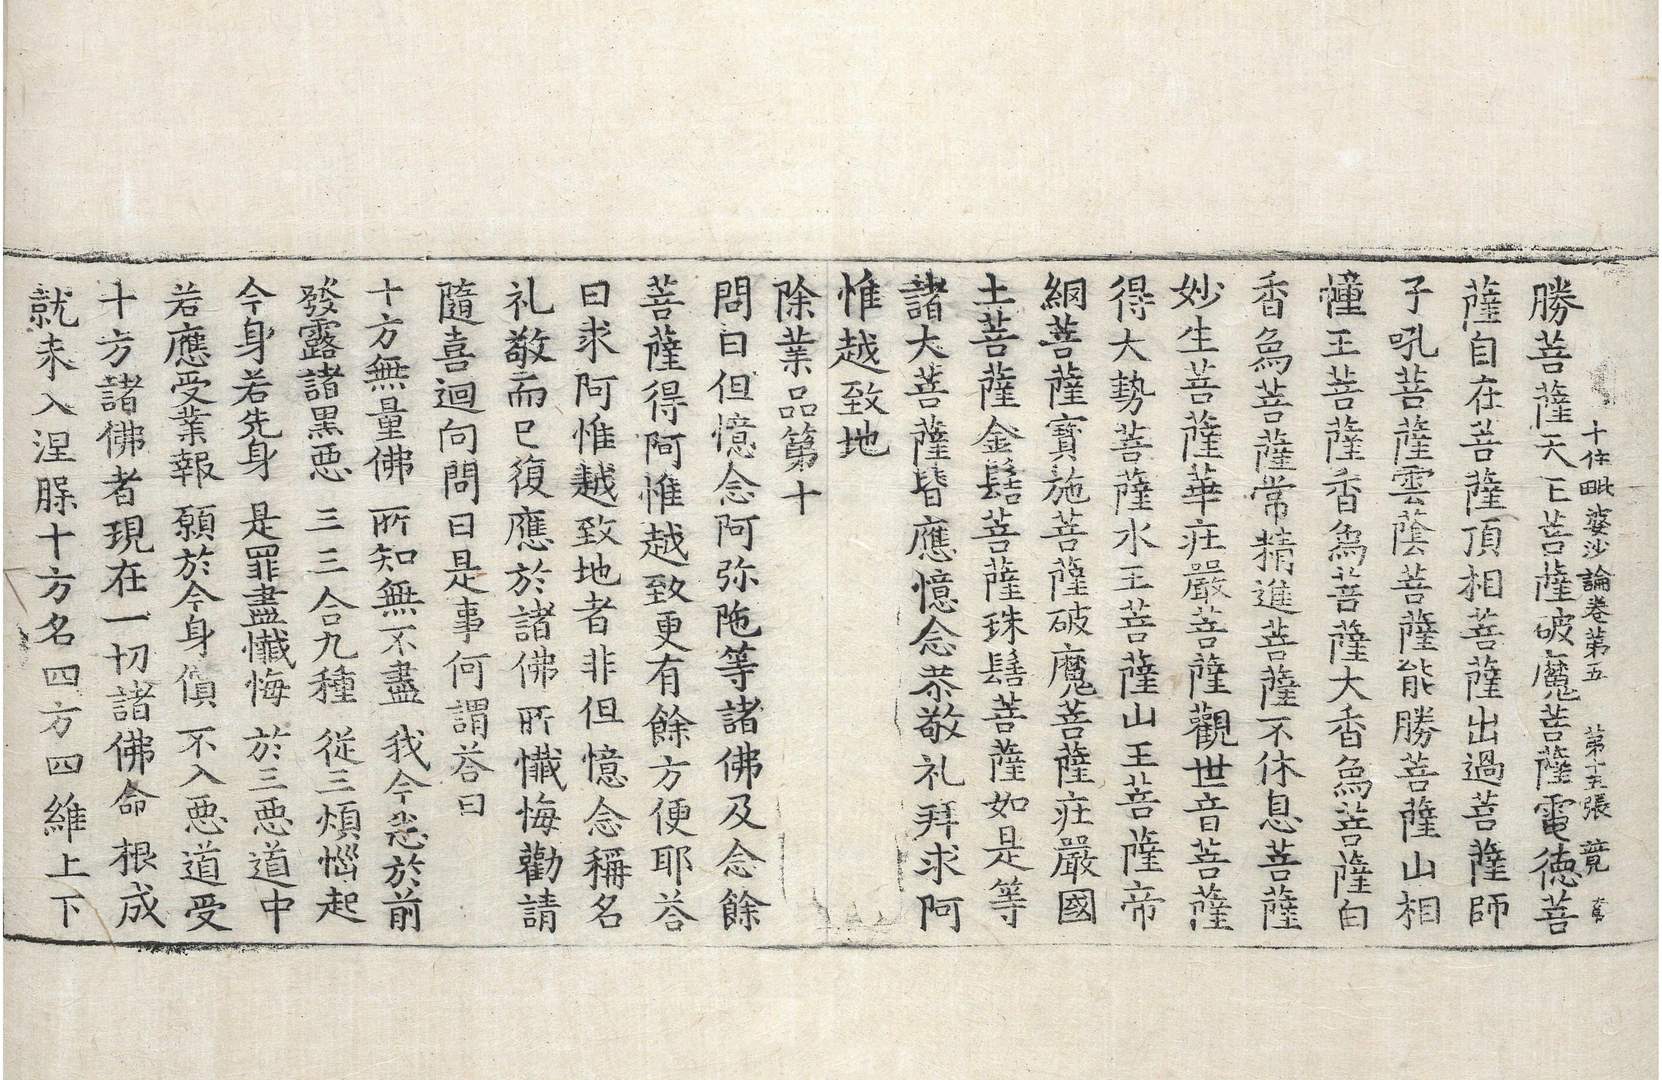 十住毗婆沙論卷第五 第十五張 竟
勝菩薩天王菩薩破魔菩薩電德菩
薩自在菩薩頂相菩薩出過菩薩師
子吼菩薩雲蔭菩薩能勝菩薩山相
幢王菩薩香烏菩薩大香烏菩薩白
香烏菩薩常精進菩薩不休息菩薩
妙生菩薩華莊嚴菩薩觀世音菩薩
得大勢菩薩水王菩薩山王菩薩帝
網菩薩寳施菩薩破魔菩薩莊嚴國
土菩薩金髻菩薩珠髻菩薩如是等
諸大菩薩皆應憶念恭敬礼拜求阿
惟越致地
除業品第十
問曰但憶念阿弥陁等諸佛及念餘
菩薩得阿惟越致更有餘方便耶荅
曰求阿惟越致地者非但憶念稱名
礼敬而已復應於諸佛所懺悔勸請
隨喜迴向問曰是事何謂荅曰
十方無量佛 所知無不盡 我今悉於前
發露諸黑惡 三三合九種 從三煩惱起
今身若先身 是罪盡懺悔 於三惡道中
若應受業報 願於今身償 不入惡道受
十方諸佛者現在一切諸佛命根成
就未入涅槃十方名四方四維上下